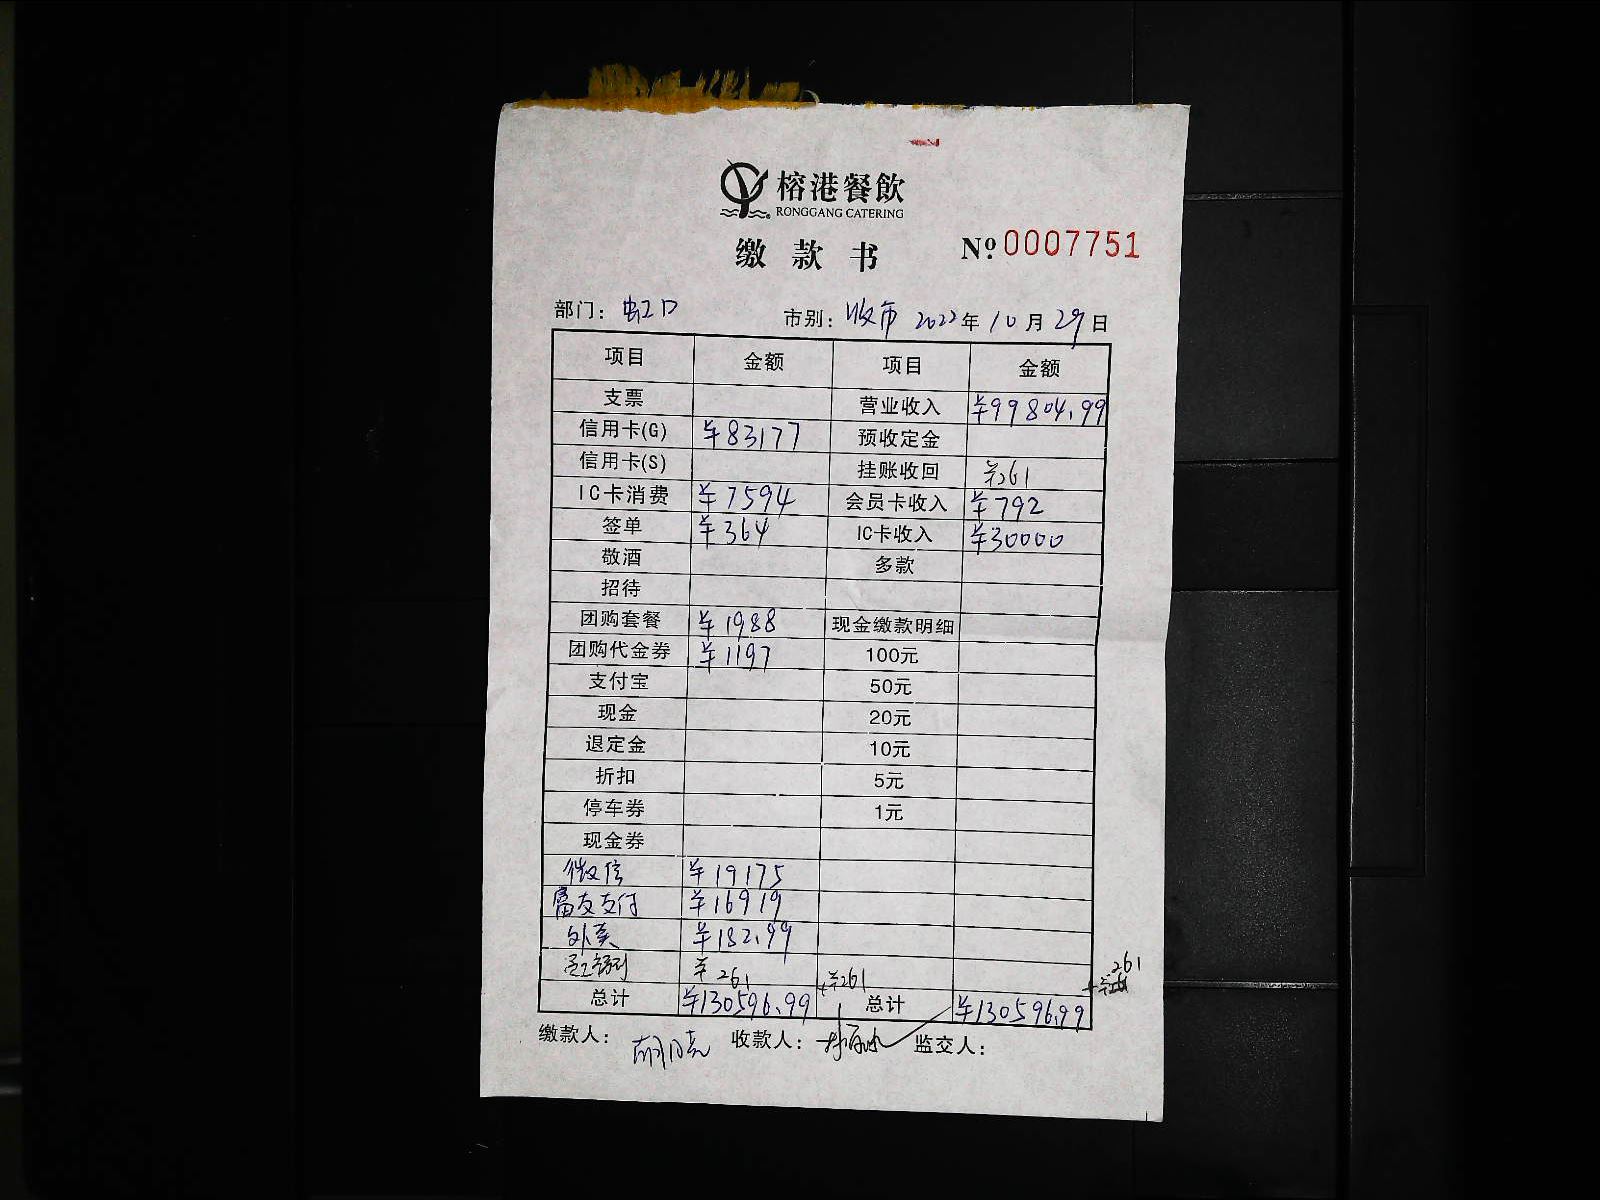 榕港餐飲
RONGGANG CATERING
缴款书
№ 0007751
部门: 虹口 市别: 收市 2022年10月29日
项目 金额 项目 金额
支票 营业收入 ¥99804.99
信用卡(G) ¥83177 预收定金
信用卡(S) 挂账收回 ¥261
IC卡消费 ¥7594 会员卡收入 ¥792
签单 ¥364 IC卡收入 ¥30000
敬酒 多款
招待
团购套餐 ¥1988 现金缴款明细
团购代金券 ¥1197 100元
支付宝 50元
现金 20元
退定金 10元
折扣 5元
停车券 1元
现金券
微信 ¥19175
富友支付 ¥16919
外卖 ¥182.99
¥261 +¥261 261
总计 ¥130596.99 总计 ¥130596.99
缴款人: 收款人: 监交人: